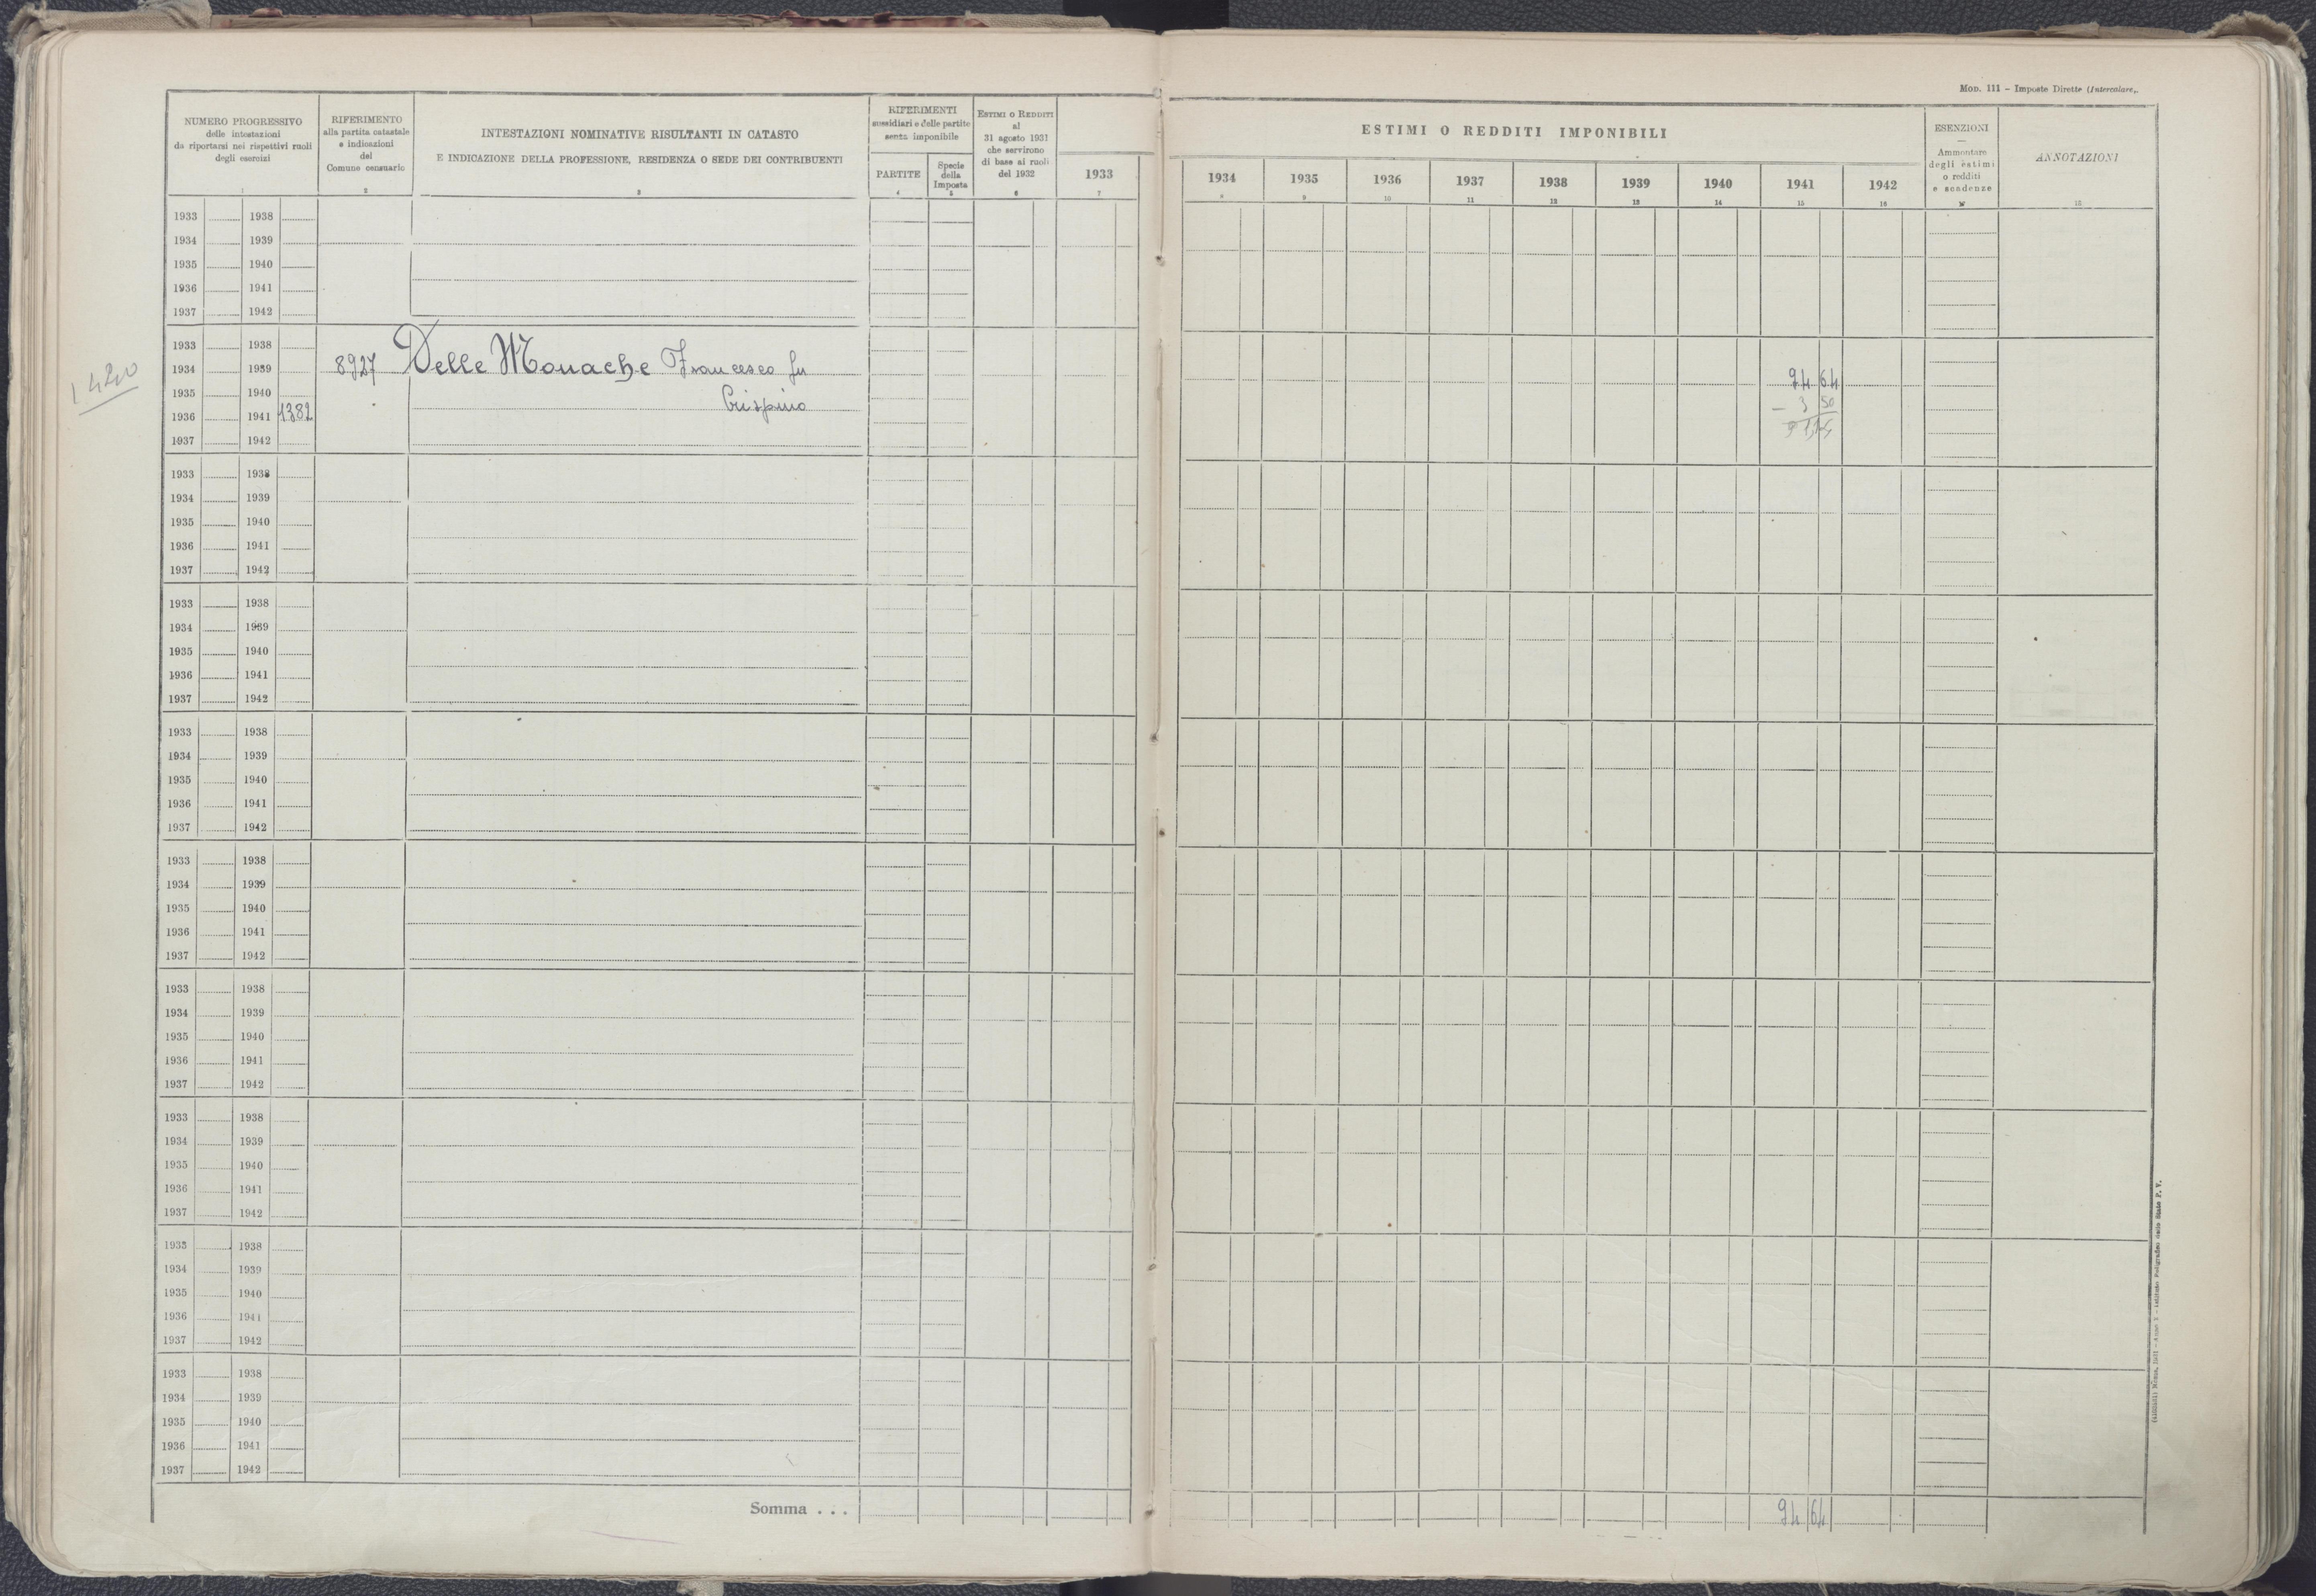 Mod. 111 – Imposte Dirette (Intercalare).
NUMERO PROGRESSIVO
delle intestazioni
da riportarsi nei rispettivi ruoli
degli esercizi
1
RIFERIMENTO
alla partita catastale
e indicazioni
del
Comune censuario
2
INTESTAZIONI NOMINATIVE RISULTANTI IN CATASTO
E INDICAZIONE DELLA PROFESSIONE, RESIDENZA O SEDE DEI CONTRIBUENTI
3
RIFERIMENTI
sussidiari e delle partite
senza imponibile
PARTITE
4
Specie
della
Imposta
5
ESTIMI O REDDITI
al
31 agosto 1931
che servirono
di base ai ruoli
del 1932
6
1933
7
ESTIMI O REDDITI IMPONIBILI
1934 1935 1936 1937 1938 1939 1940 1941 1942
8 9 10 11 12 13 14 15 16
ESENZIONI
—
Ammontare
degli estimi
o redditi
e scadenze
17
ANNOTAZIONI
18
1933 1938
1934 1939
1935 1940
1936 1941
1937 1942
1933 1938
1420
1934 1939 8927 Delle Monache Francesco fu 94 64
1935 1940 Crispino – 3 50
1936 1941 1382 91,14
1937 1942
1933 1938
1934 1939
1935 1940
1936 1941
1937 1942
1933 1938
1934 1939
1935 1940
1936 1941
1937 1942
1933 1938
1934 1939
1935 1940
1936 1941
1937 1942
1933 1938
1934 1939
1935 1940
1936 1941
1937 1942
1933 1938
1934 1939
1935 1940
1936 1941
1937 1942
1933 1938
1934 1939
1935 1940
1936 1941
1937 1942
1933 1938
1934 1939
1935 1940
1936 1941
1937 1942
1933 1938
1934 1939
1935 1940
1936 1941
1937 1942
Somma . . . 94 64
Roma, 1931 - Anno X - Istituto Poligrafico dello Stato P. V.